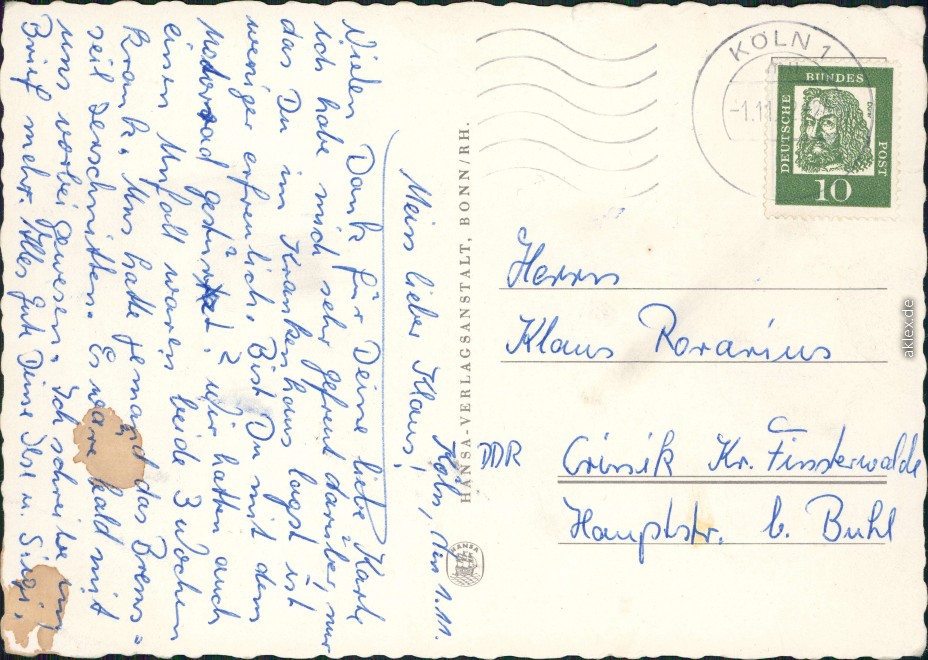 Köln, den 1.11.
Mein lieber Klaus!
Vielen Dank für Deine liebe Karte
ich habe mich sehr gefreut darüber, nur
das Du im Krankenhaus lagst ist
weniger erfreulich. Bist Du mit dem
Motorrad gestürzt? Wir hatten auch
einen Unfall waren beide 3 Wochen
krank. Uns hatte jemand das Brems=
seil zerschnitten. Es wäre bald mit
uns vorbei gewesen. Ich schreibe im
Brief mehr. Alles Gute Deine Ilse u.
HANSA-VERLAGSANSTALT, BONN/RH.
HANSA
KÖLN 1
-1.11.
DEUTSCHE
BUNDES
POST
Dürer
10
Herrn
Klaus Rorarius
DDR Crinik Kr. Finsterwalde
Hauptstr. b. Buhl
aklex.de